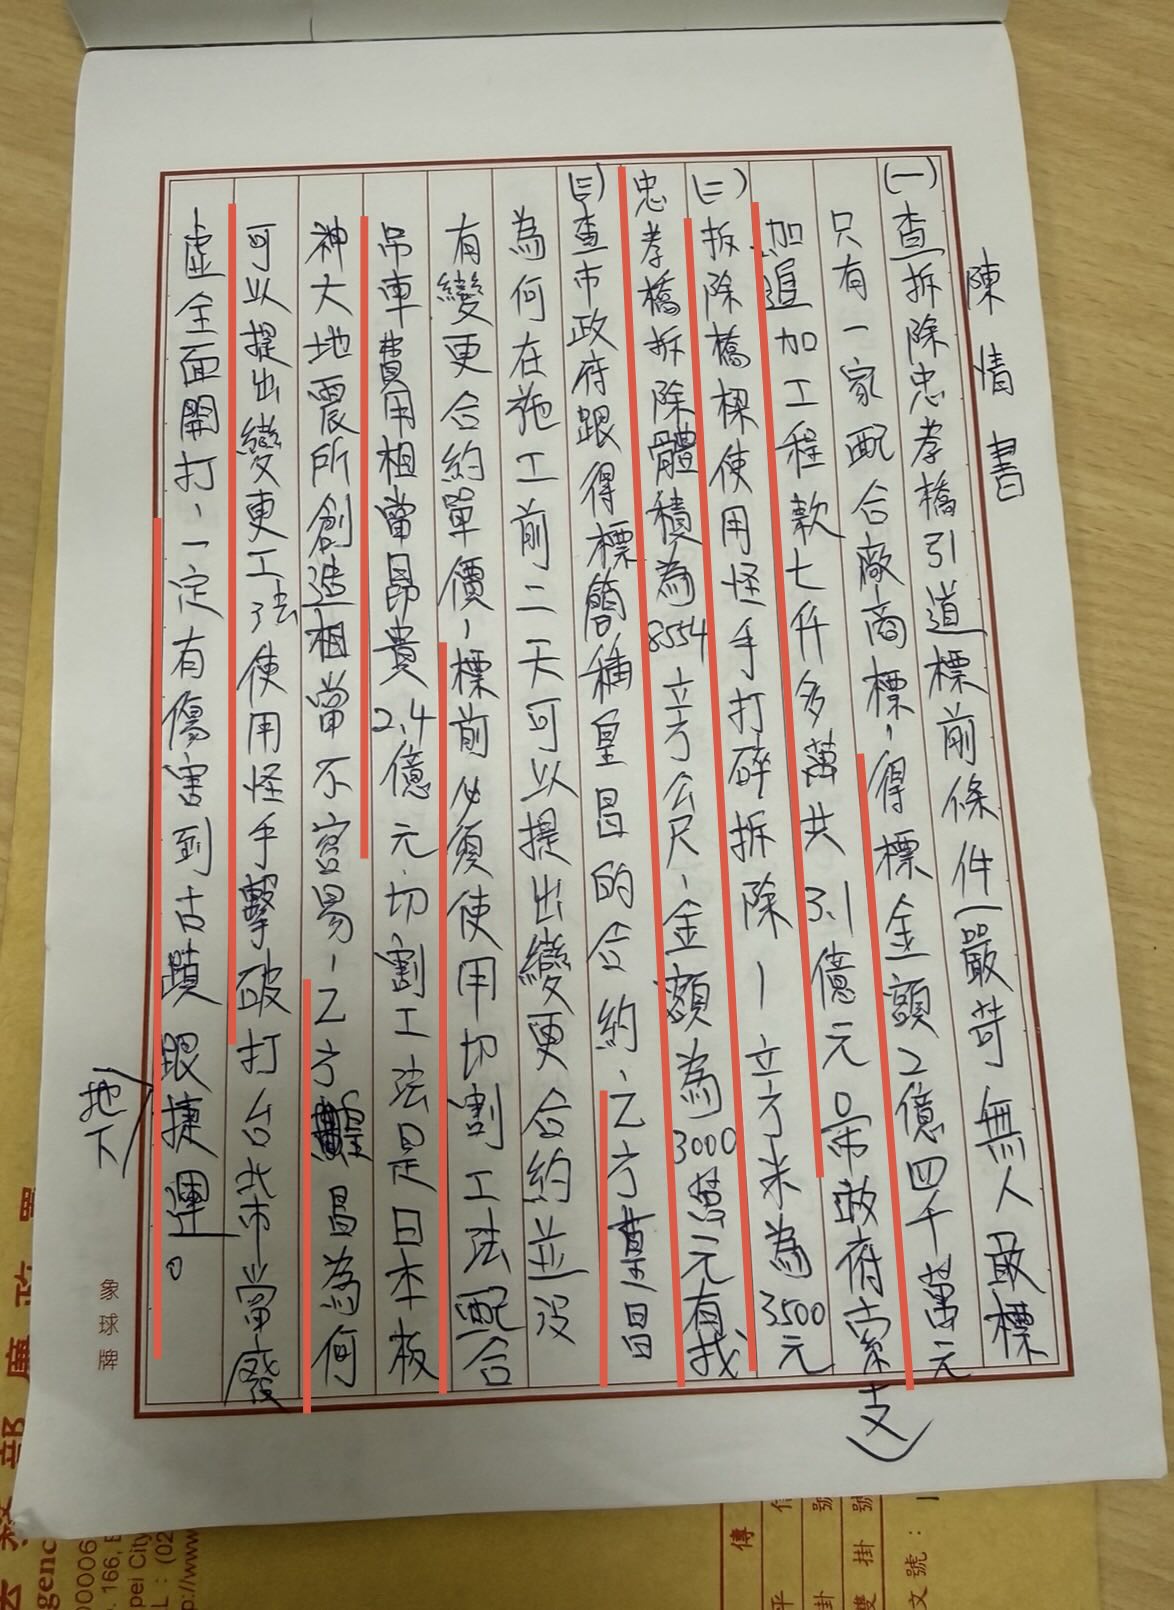 陳情書
(一)查拆除忠孝橋引道標前條件嚴苛無人敢標
只有一家配合廠商標,得標金額2億四千萬元
加追加工程款七仟多萬共3.1億元 市政府索支
(二)拆除橋樑使用怪手打碎拆除1立方米為3500元
忠孝橋拆除體積為8554立方公尺,金額為3000萬元有找
(三)查市政府跟得標簡種皇昌的合約,乙方皇昌
為何在施工前二天可以提出變更合約並沒
有變更合約單價,標前必須使用切割工法配合
吊車費用相當昂貴2.4億元.切割工法是日本板
神大地震所創造相當不容易,乙方 昌為何
可以提出變更工法使用怪手擊破打台北市當廢
虛全面開打,一定有傷害到古蹟跟捷運。
地下
象球牌
法務部廉政署
gency
0006
166,
pei City
L:(02
p://www
傳
平 信
掛 號
雙掛號
文號: